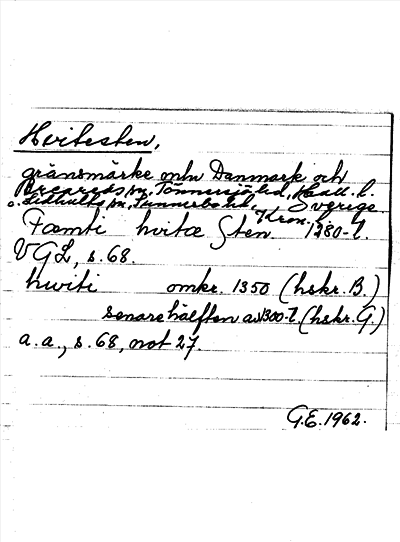 Hvitesten,
gränsmärke mln Danmark och
Breareds sn, Tönnersjö hd, Hall. l.
o. Lidhults sn, Sunnerbo hd, Sverige.
Kron. l.
Fæmti hvitæ Sten. 1280-t.
VGL, s. 68.
hwiti omkr. 1350 (hskr. B.)
senare hälften av 1300-t. (hskr. G.)
a.a., s. 68, not 27.
G.E. 1962.